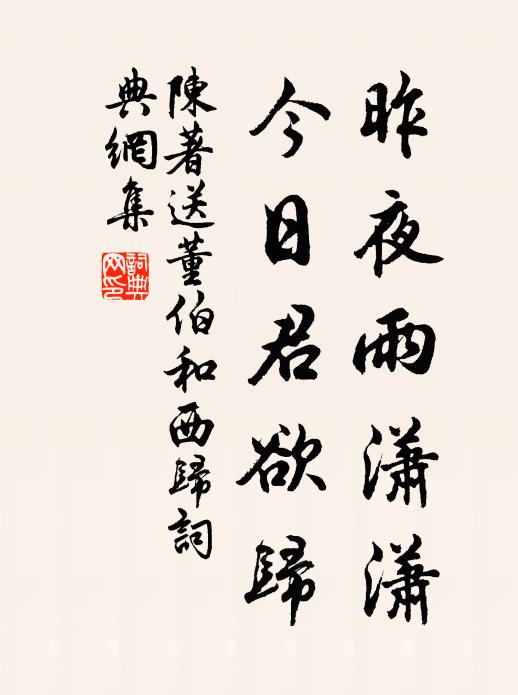 昨夜雨潇潇
今日君欲歸
陳著送董伯和西歸詞
典網集
詞典网印